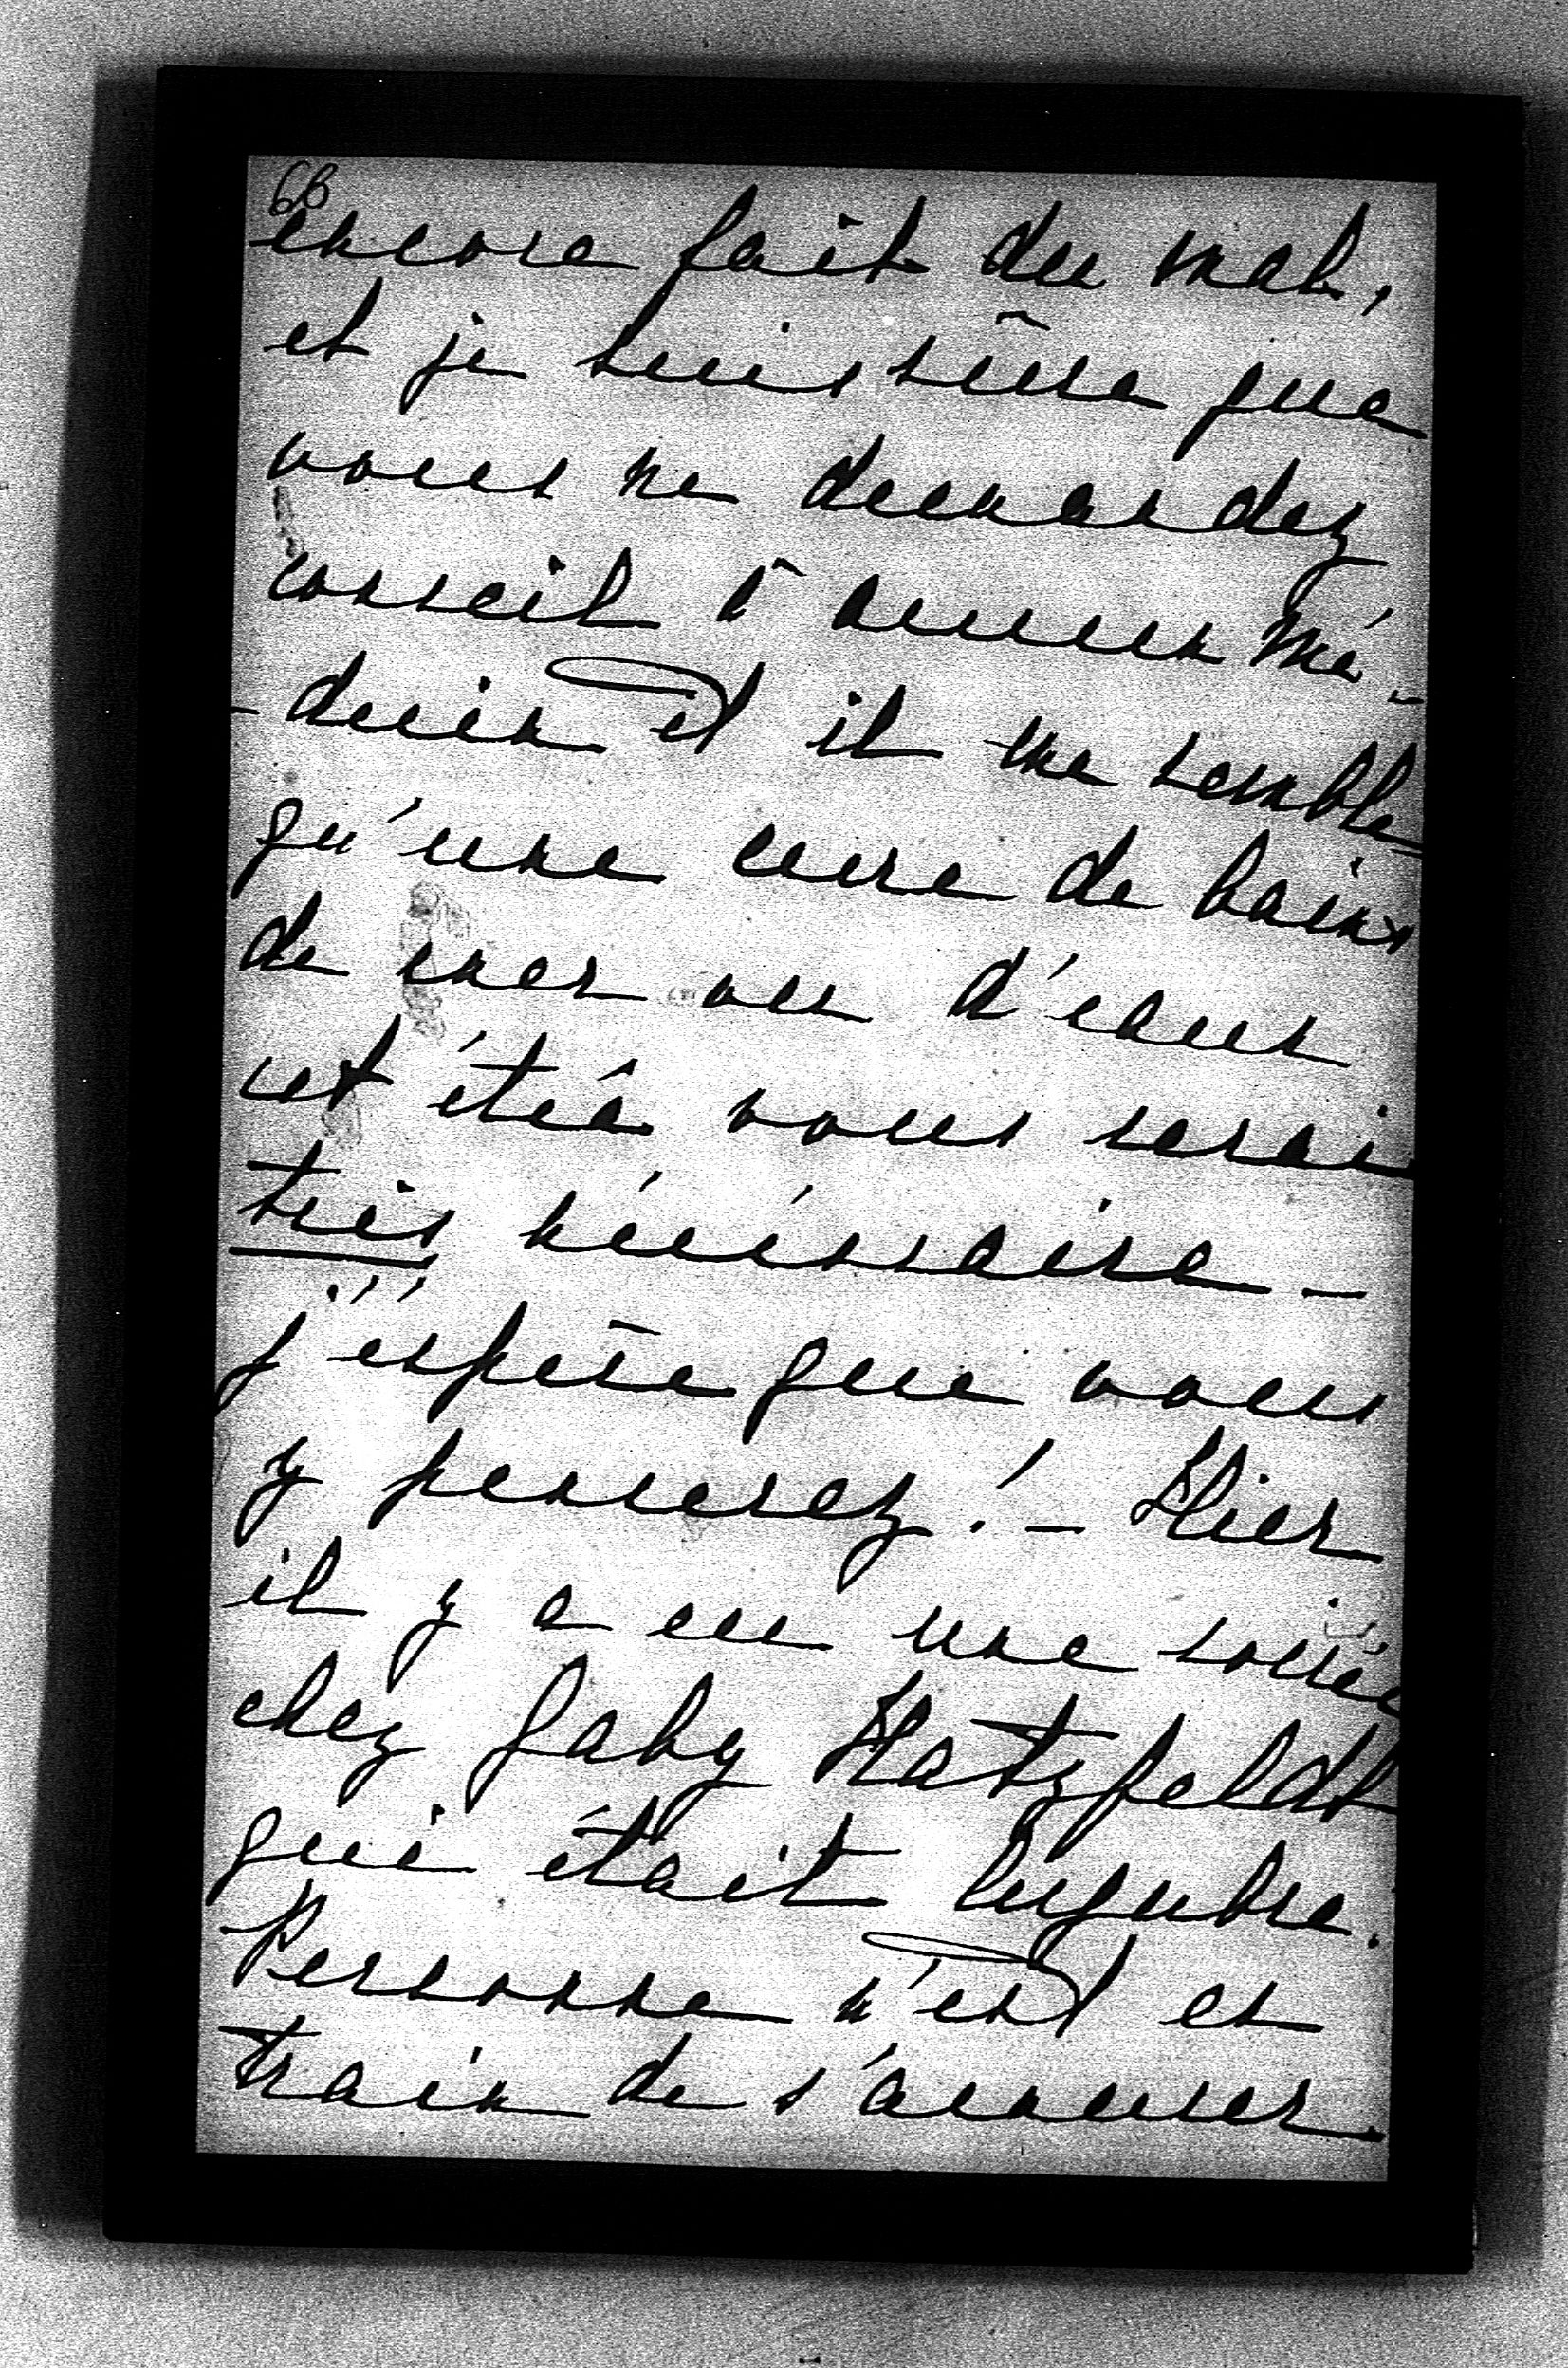 6B
encore fait du mal,
et je suis sûre que
vous ne demandez
conseil à aucun mé-
-decin et il me semble
qu'une cure de bains
de mer ou d'eaux
cet été vous serai
très nécéssaire –
j'éspère que vous
y penserez! – Hier
il y a eu une soirée
chez Gaby Hatzfeldt
qui était lugubre.
Personne n'est en
train de s'amuser.